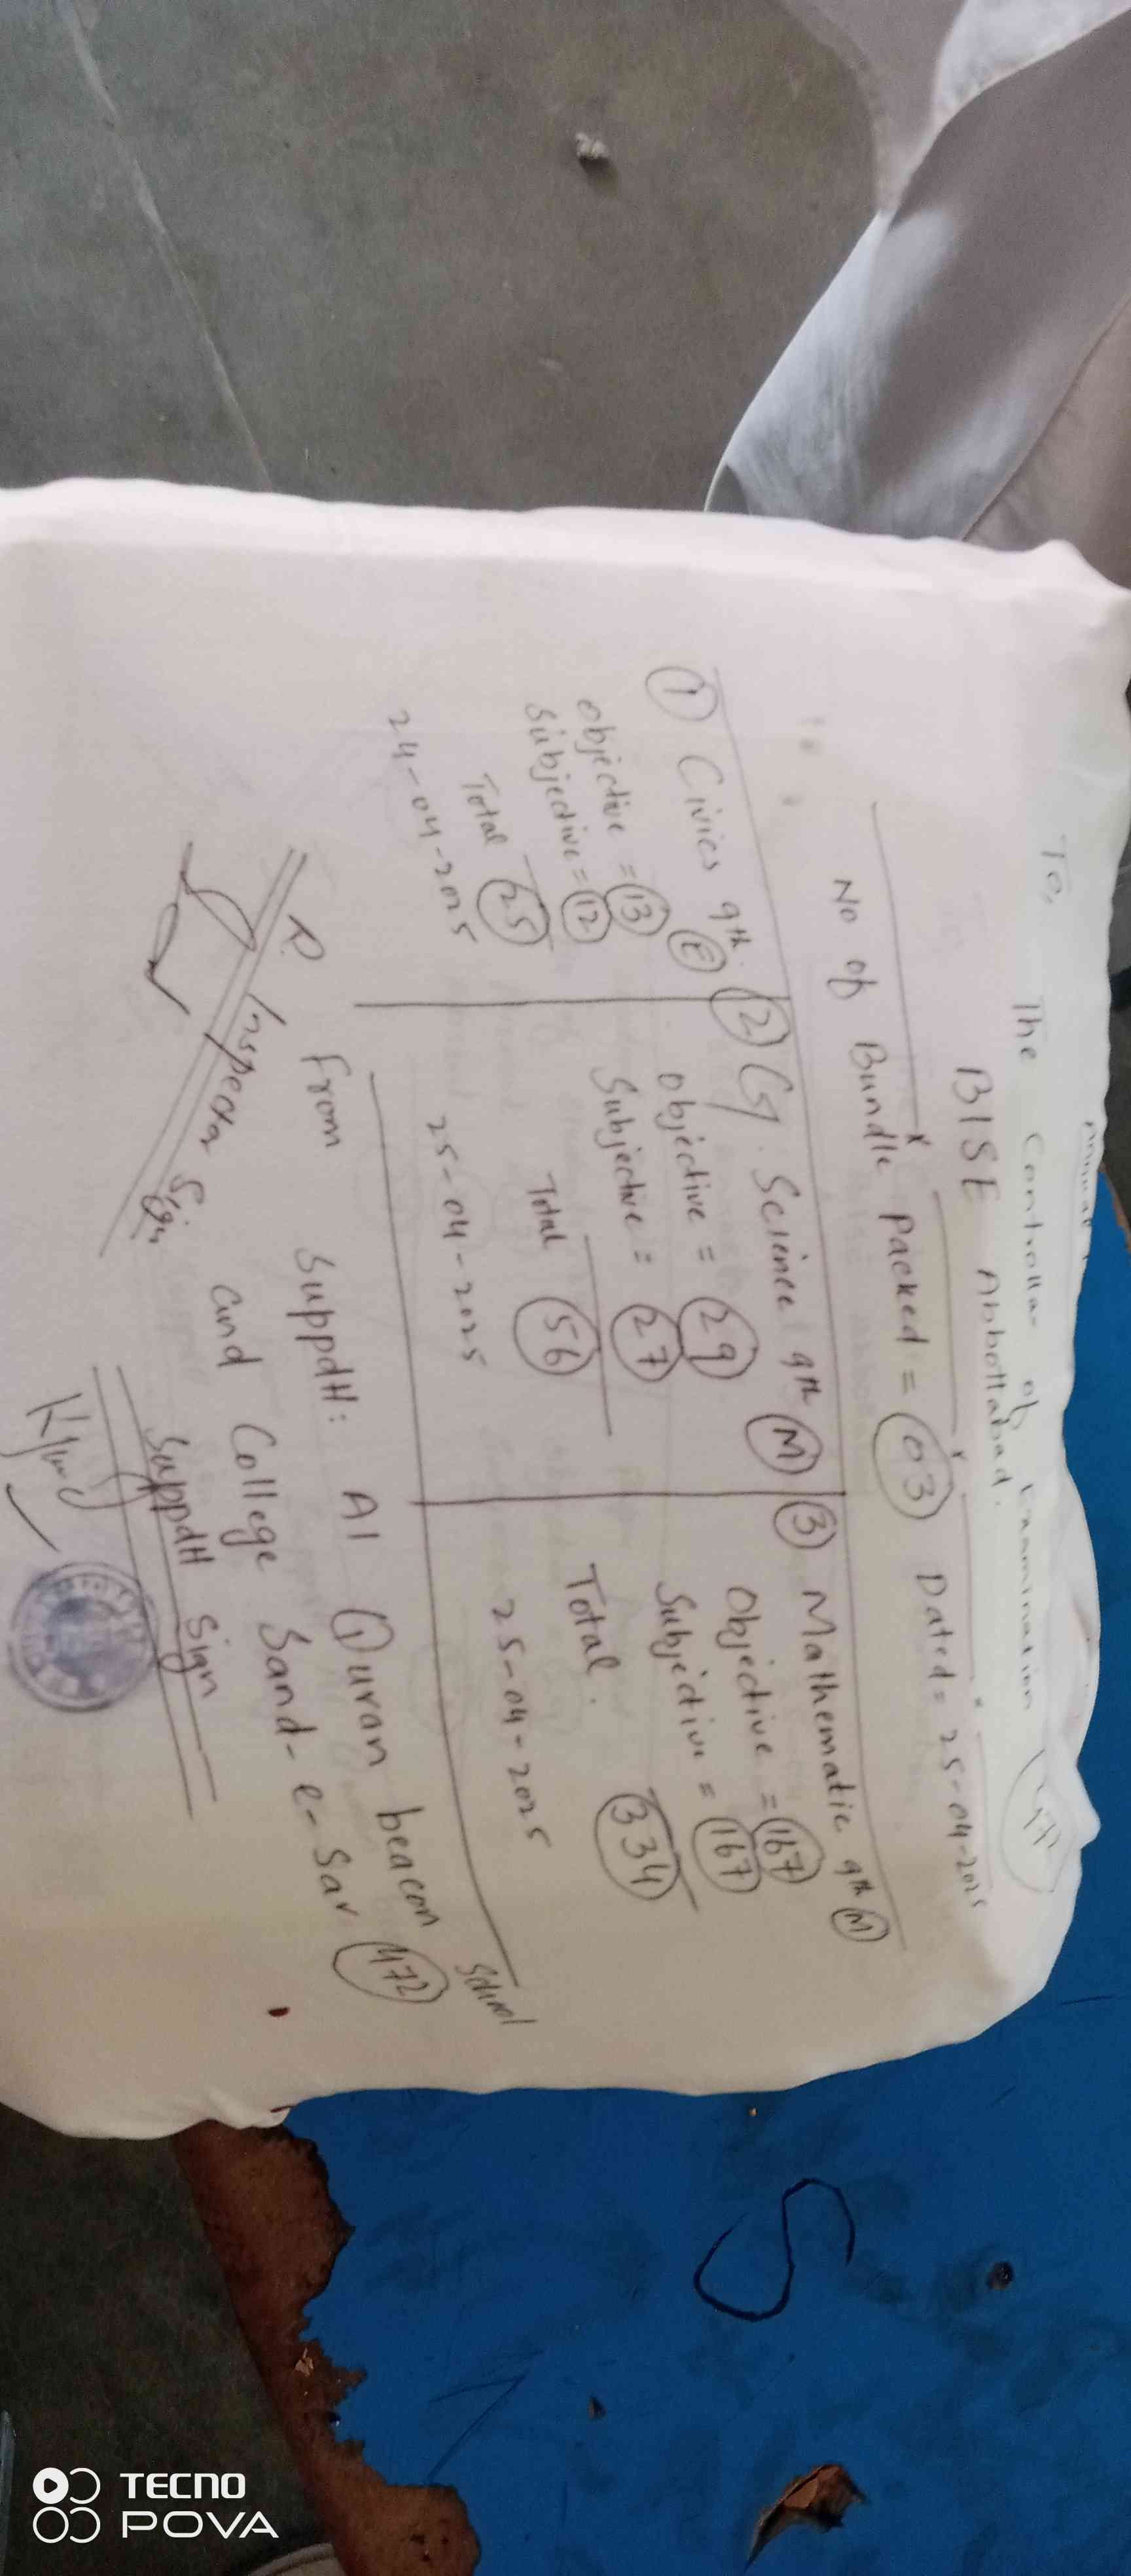 Annual
To, The Controllar of Examination
BISE Abbottabad.
No of Bundle Packed = 03 Dated = 25-04-2025
1 Civics 9th. E
objective = 13
Subjective = 12
Total 25
24-04-2025
2 G. Science 9th M
objective = 29
Subjective = 27
Total 56
25-04-2025
3 Mathematic 9th M
Objective = 167
Subjective = 167
Total. 334
25-04-2025
From SuppdH: Al Quran beacon School
and College Band-e-Sar 472
R. Inspector Sign
SuppdH Sign
S
TECNO
POVA